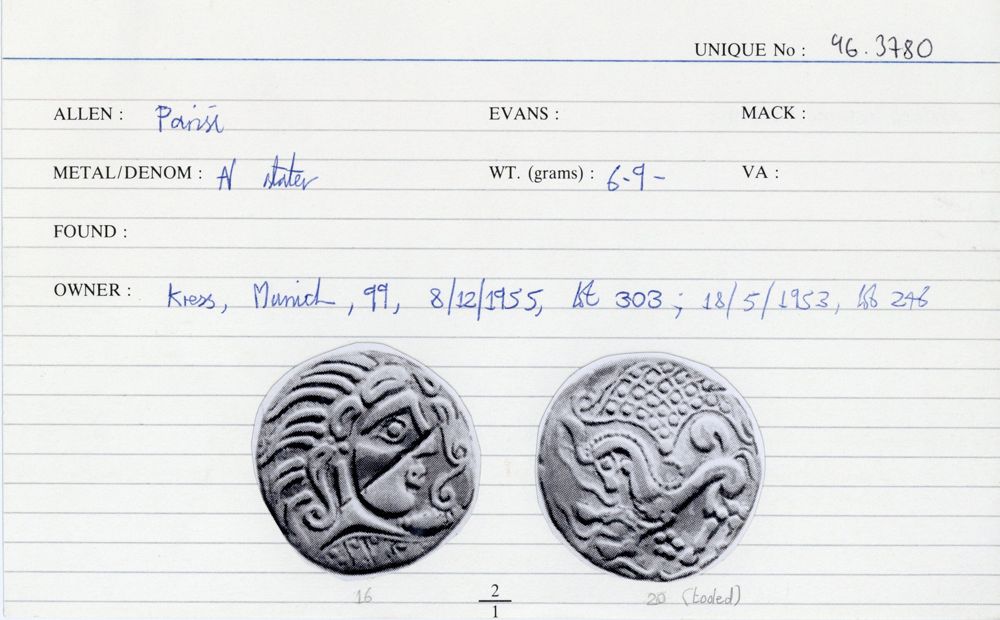 UNIQUE No : 96.3780
ALLEN : Parisi EVANS : MACK :
METAL/DENOM : N stater WT. (grams) : 6.9- VA :
FOUND :
OWNER : Kress, Munich, 99, 8/12/1955, lot 303 ; 18/5/1953, lot 246
16 2/1 20 (tooled)